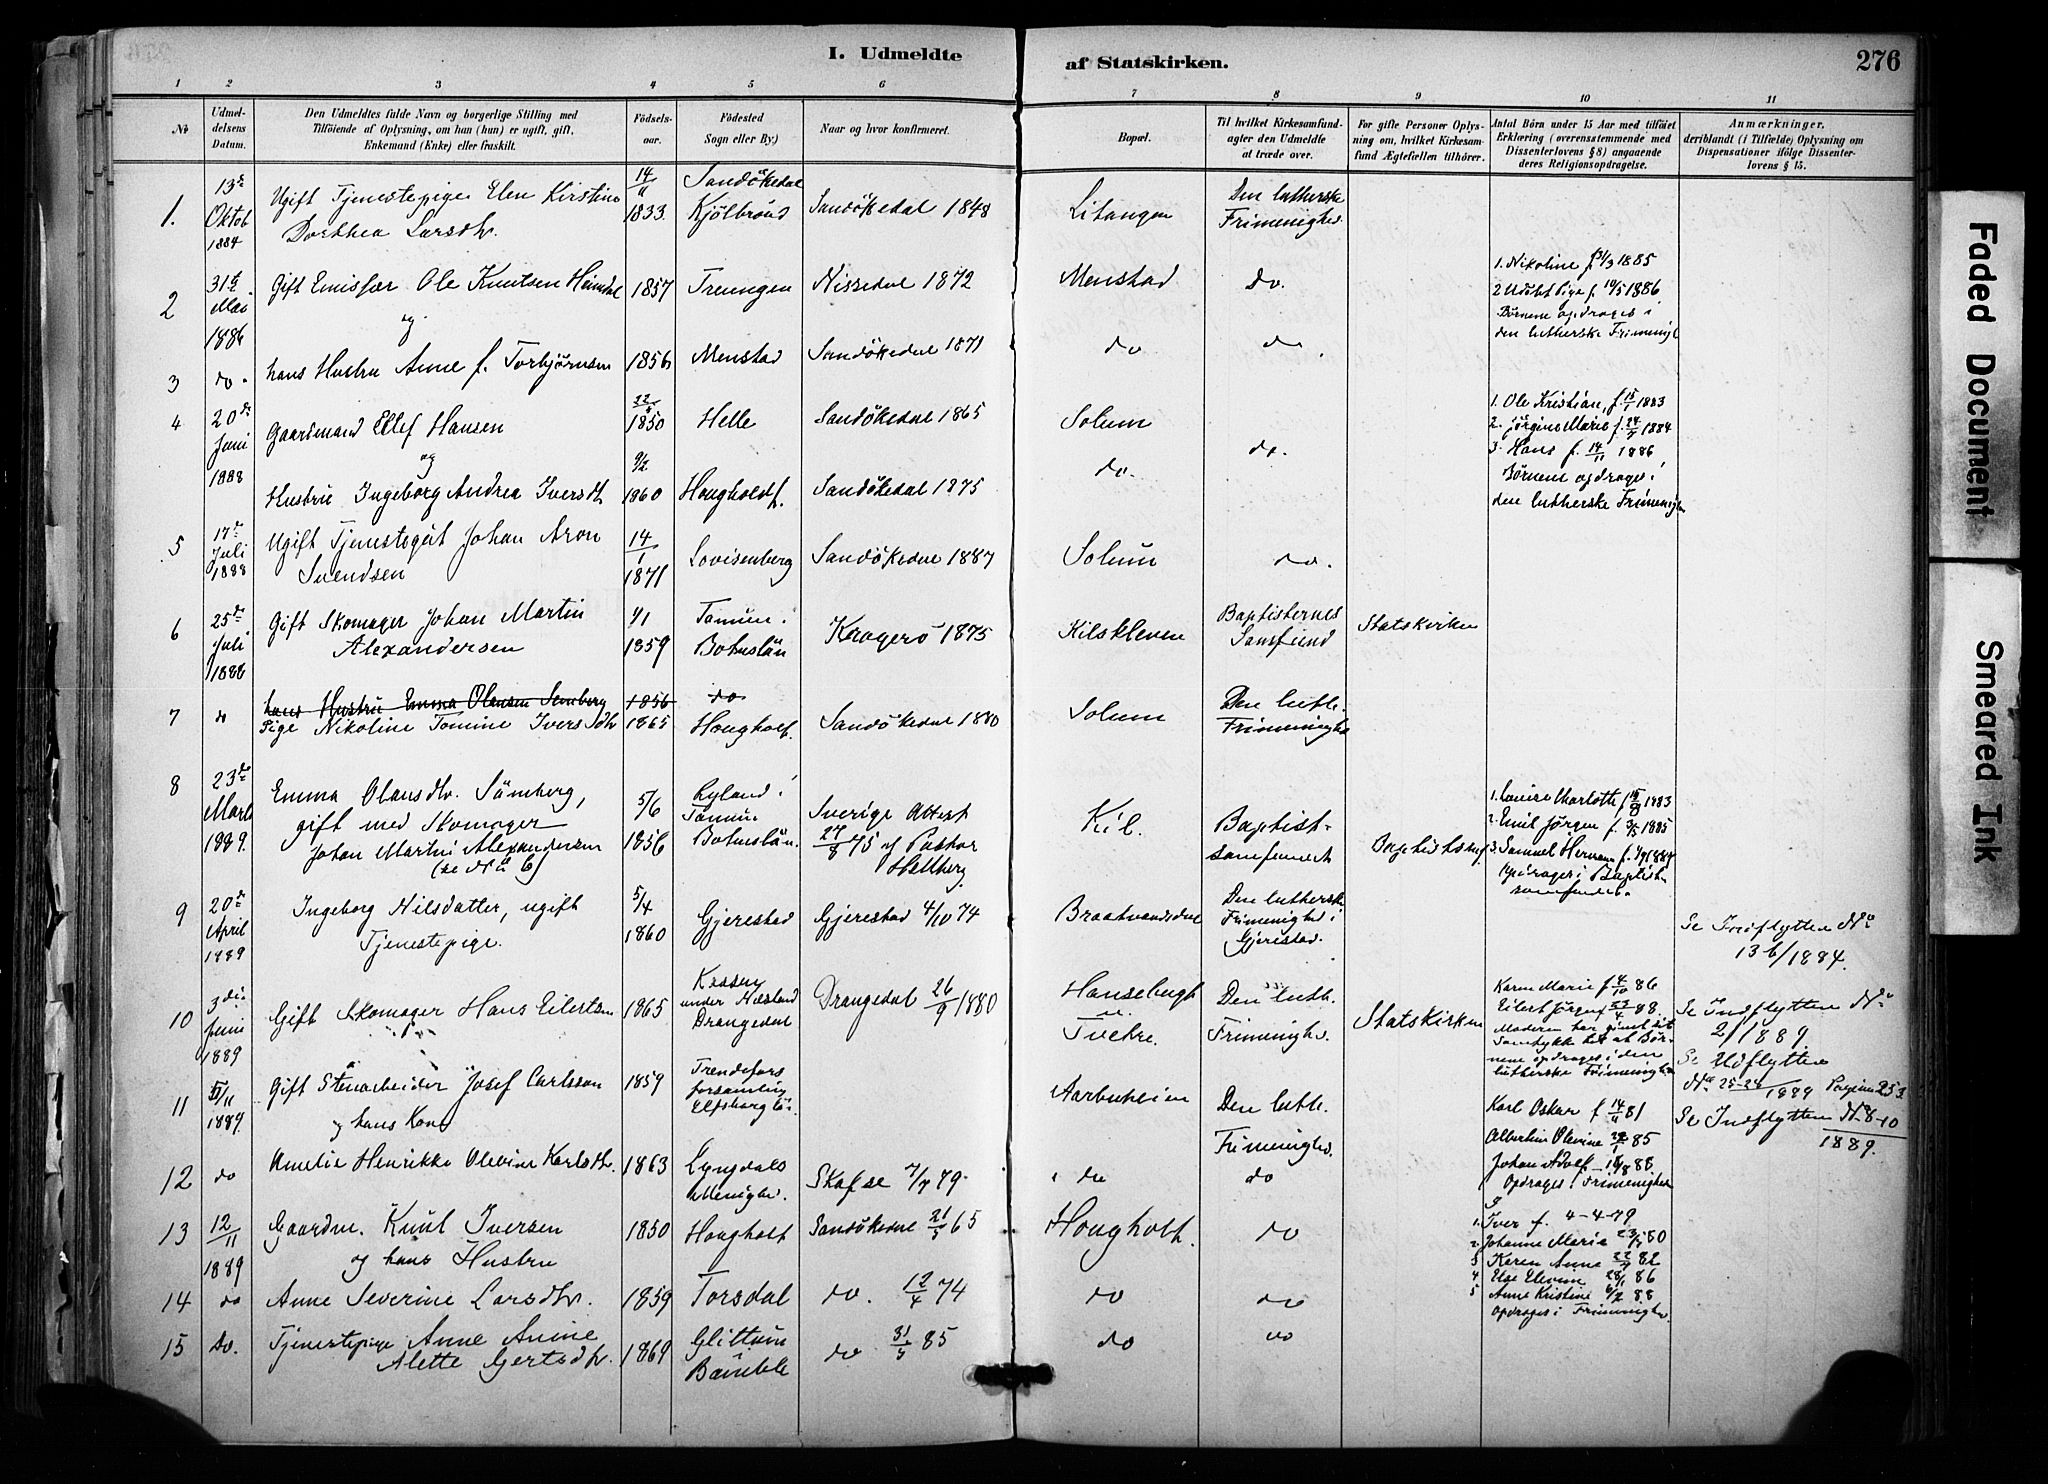 I. Udmeldte af Statskirken. 276
1 2 3 4 5 6 7 8 9 10 11
No
Udmel-
delsens
Datum.
Den Udmeldtes fulde Navn og borgerlige Stilling med
Tilföiende af Oplysning, om han (hun) er ugift, gift,
Enkemand (Enke) eller fraskilt.
Födsels-
aar.
Födested
Sogn eller By:)
Naar og hvor konfirmeret.
Bopæl.
Til hvilket Kirkesamfund-
agter den Udmeldte
at træde over.
For gifte Personer Oplys-
ning om, hvilket Kirkesam-
fund Ægtefællen tilhörer.
Antal Börn under 15 Aar med tilföiet
Erklæring (overensstemmende med
Dissenterlovens §8) angaaende
deres Religionsopdragelse.
Anmærkninger,
deriblandt (i Tilfælde) Oplysning om
Dispensationer ifölge Dissenter-
lovens § 15.
1.
13de
Oktob
1884
Ugift Tjenestepige Elen Kirstine
Dorthea Larsdtr.
14/11
1833
Sandökedal
Kjölbrönd
Sandökedal 1848
Litangen
Den lutherske
Frimenighed
2
31te
Mai
1886
Gift Emissær Ole Knutsen Heimdal
og
1857
Treungen
Nissedal 1872
Menstad
do.
1. Nikoline f. 21/3 1885
2 Udöbt Pige f. 10/5 1886
Börnene opdrages i
den lutherske Frimenigh
3
do.
hans Hustru Anne f. Torbjörnsen
1856
Menstad
Sandökedal 1871
do
do.
4
20de
Juni
1888
Gaardmand Ellef Hansen
og
1850
Helle
Sandökedal 1865
Solum
do.
1. Ole Kristian, f. 15/1 1883
2. Jörgine Marie f. 24/7 1884
3. Hans f. 14/11 1886
Börnene opdrages i
den lutherske Frimenigh
Hustru Ingeborg Andrea Iversdtr
9/2
1860
Hougholdt.
Sandökedal 1875
do.
5
17de
Juli
1888
Ugift Tjenestegut Johan Aron
Svendsen
14/1
1871
Lovisenberg
Sandökedal 1887
Solum
do.
6
25de
Juli
1888
Gift Skomager Johan Martin
Alexandersen
1/1
1859
Tanum i
Bohuslän
Kragerö 1875
Kilskleven
Baptisternes
Samfund
Statskirken
7
do
hans Hustru Emma Olausen Semberg 1856 do
Pige Nikoline Tomine Iversdtr
1865
Hougholt.
Sandökedal 1880
Solum
Den luth.
Frimenighed
8
23de
Marts
1889.
Emma Olausdtr. Sämberg,
gift med Skomager
Johan Martin Alexandersen
(se No 6)
5/6
1856
Ryland i
Tanum
Bohuslän.
Sverige Attest
27/8 75 af Pastor
Hellberg.
Kil.
Baptist-
samfundet
Baptistsamf.
1. Louise Charlotte f 15/8 1883
2. Emil Jörgen f. 3/5 1885
3. Samuel Herman f. 1/9 1887
opdrages i Baptist-
samfundet.
9
20de
April
1889
Ingeborg Nilsdatter, ugift
Tjenestepige.
5/4
1860
Gjerestad
Gjerestad 4/10 74
Braatvandsdal
Den lutherske
Frimenighed i
Gjerestad.
Se Indflyttede No
136/1884.
10
3die
Juni
1889
Gift Skomager Hans Eilertsen
1865
under Næsland
Drangedal
Drangedal 26/9 1880
Tveitre.
Den luth.
Frimenighed.
Statskirken
Karen Marie f 4/10 86
Eilert Jörgen 88.
Moderen har givet sit
Samtykke til at Bör-
nene opdrages i den
lutherske Frimenighed
Se Indflyttede No
2/1889
Se Udflyttede
No 25-28/1889 Pagina 253
11
5/11
1889.
Gift Stenarbeider Josef Carlsson
og hans Kone
1859
Trendefors
forsamling
Elfsborg län.
Aarbuheien
Den luth.
Frimenighed.
Karl Oskar f 14/11 81
Albertine Olevine 85
Johan Adolf 88
Opdrages i Frimenighed
Se Indflyttede No 8-10
1889.
12
do
Amelie Henrikke Olevine Karlsdtr.
1863
Lyngdals
Menighed.
Skafse 7/9 79.
do
do
13
12/11
1889
Gaardm. Knut Iversen
og hans Hustru
1850
Hougholt
Sandökedal 21/5 65
Hougholt.
do
1. Iver f. 4-4-79
2. Johanne Marie 23/7 80
3 Karen Anne 22/7 82
4 Else Elevine 28/1 86
5 Anne Kristine 6/2 88
opdrages i Frimenighed.
14
do
Anne Severine Larsdtr.
1859
Torsdal
do. 12/4 74
do
do
15
do.
Tjenestepige Anne Anine
Alette Gertsdtr.
1869
Glittum
Bamble
do 31/5 85
do
do
Faded Document
Smeared Ink